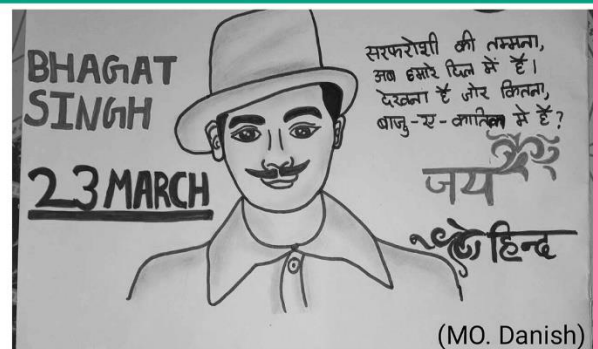 BHAGAT
SINGH
23 MARCH
सरफरोशी की तमन्ना,
अब हमारे दिल में है।
देखना है जोर कितना,
बाजु-ए-कातिल मे है?
जय
हिन्द
(MO. Danish)